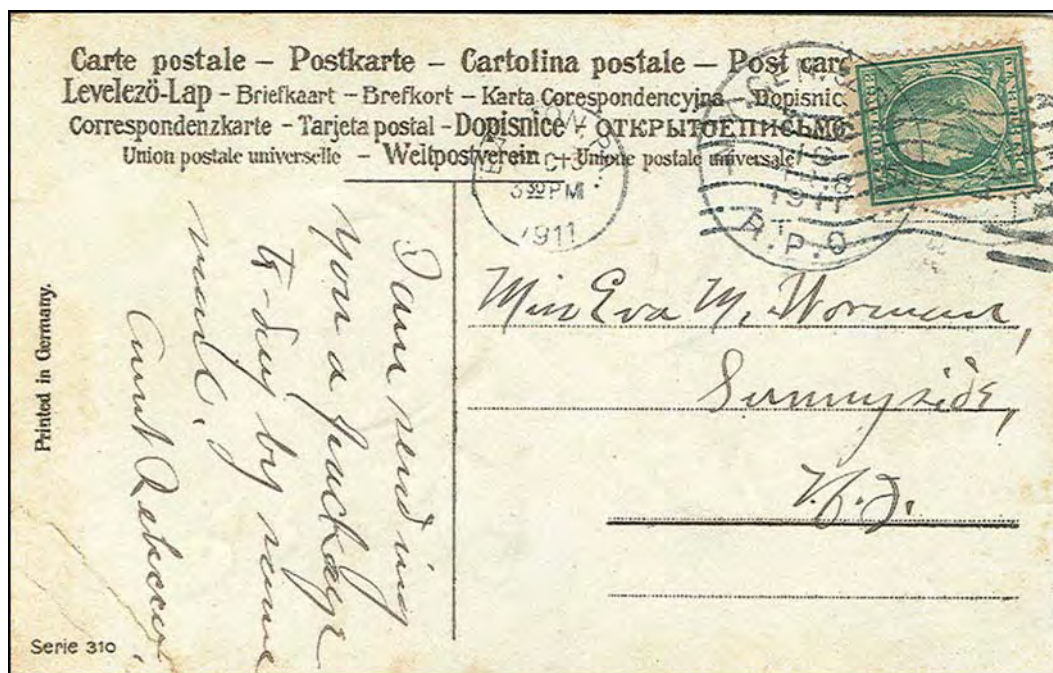 Carte postale – Postkarte – Cartolina postale – Post card
Levelező-Lap – Briefkaart – Brefkort – Karta Corespondencyjna – Dopisnic
Correspondenzkarte – Tarjeta postal – Dopisnice – ОТКРЫТОЕПИСЬМО
Union postale universelle – Weltpostverein – Unione postale universale
3 30 PM
1911
1911
R.P.O
Printed in Germany.
I am sending
you a package
to-day by same
mail.
Aunt Rebecca.
Miss Eva M. Worman,
Sunnyside,
N.J.
Serie 310